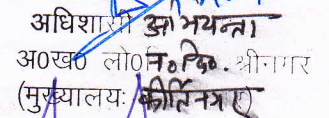 अधिशासी अभियन्ता
अ०ख० लो०नि०वि०. श्रीनगर
(मुख्यालयः कीर्तिनगर)